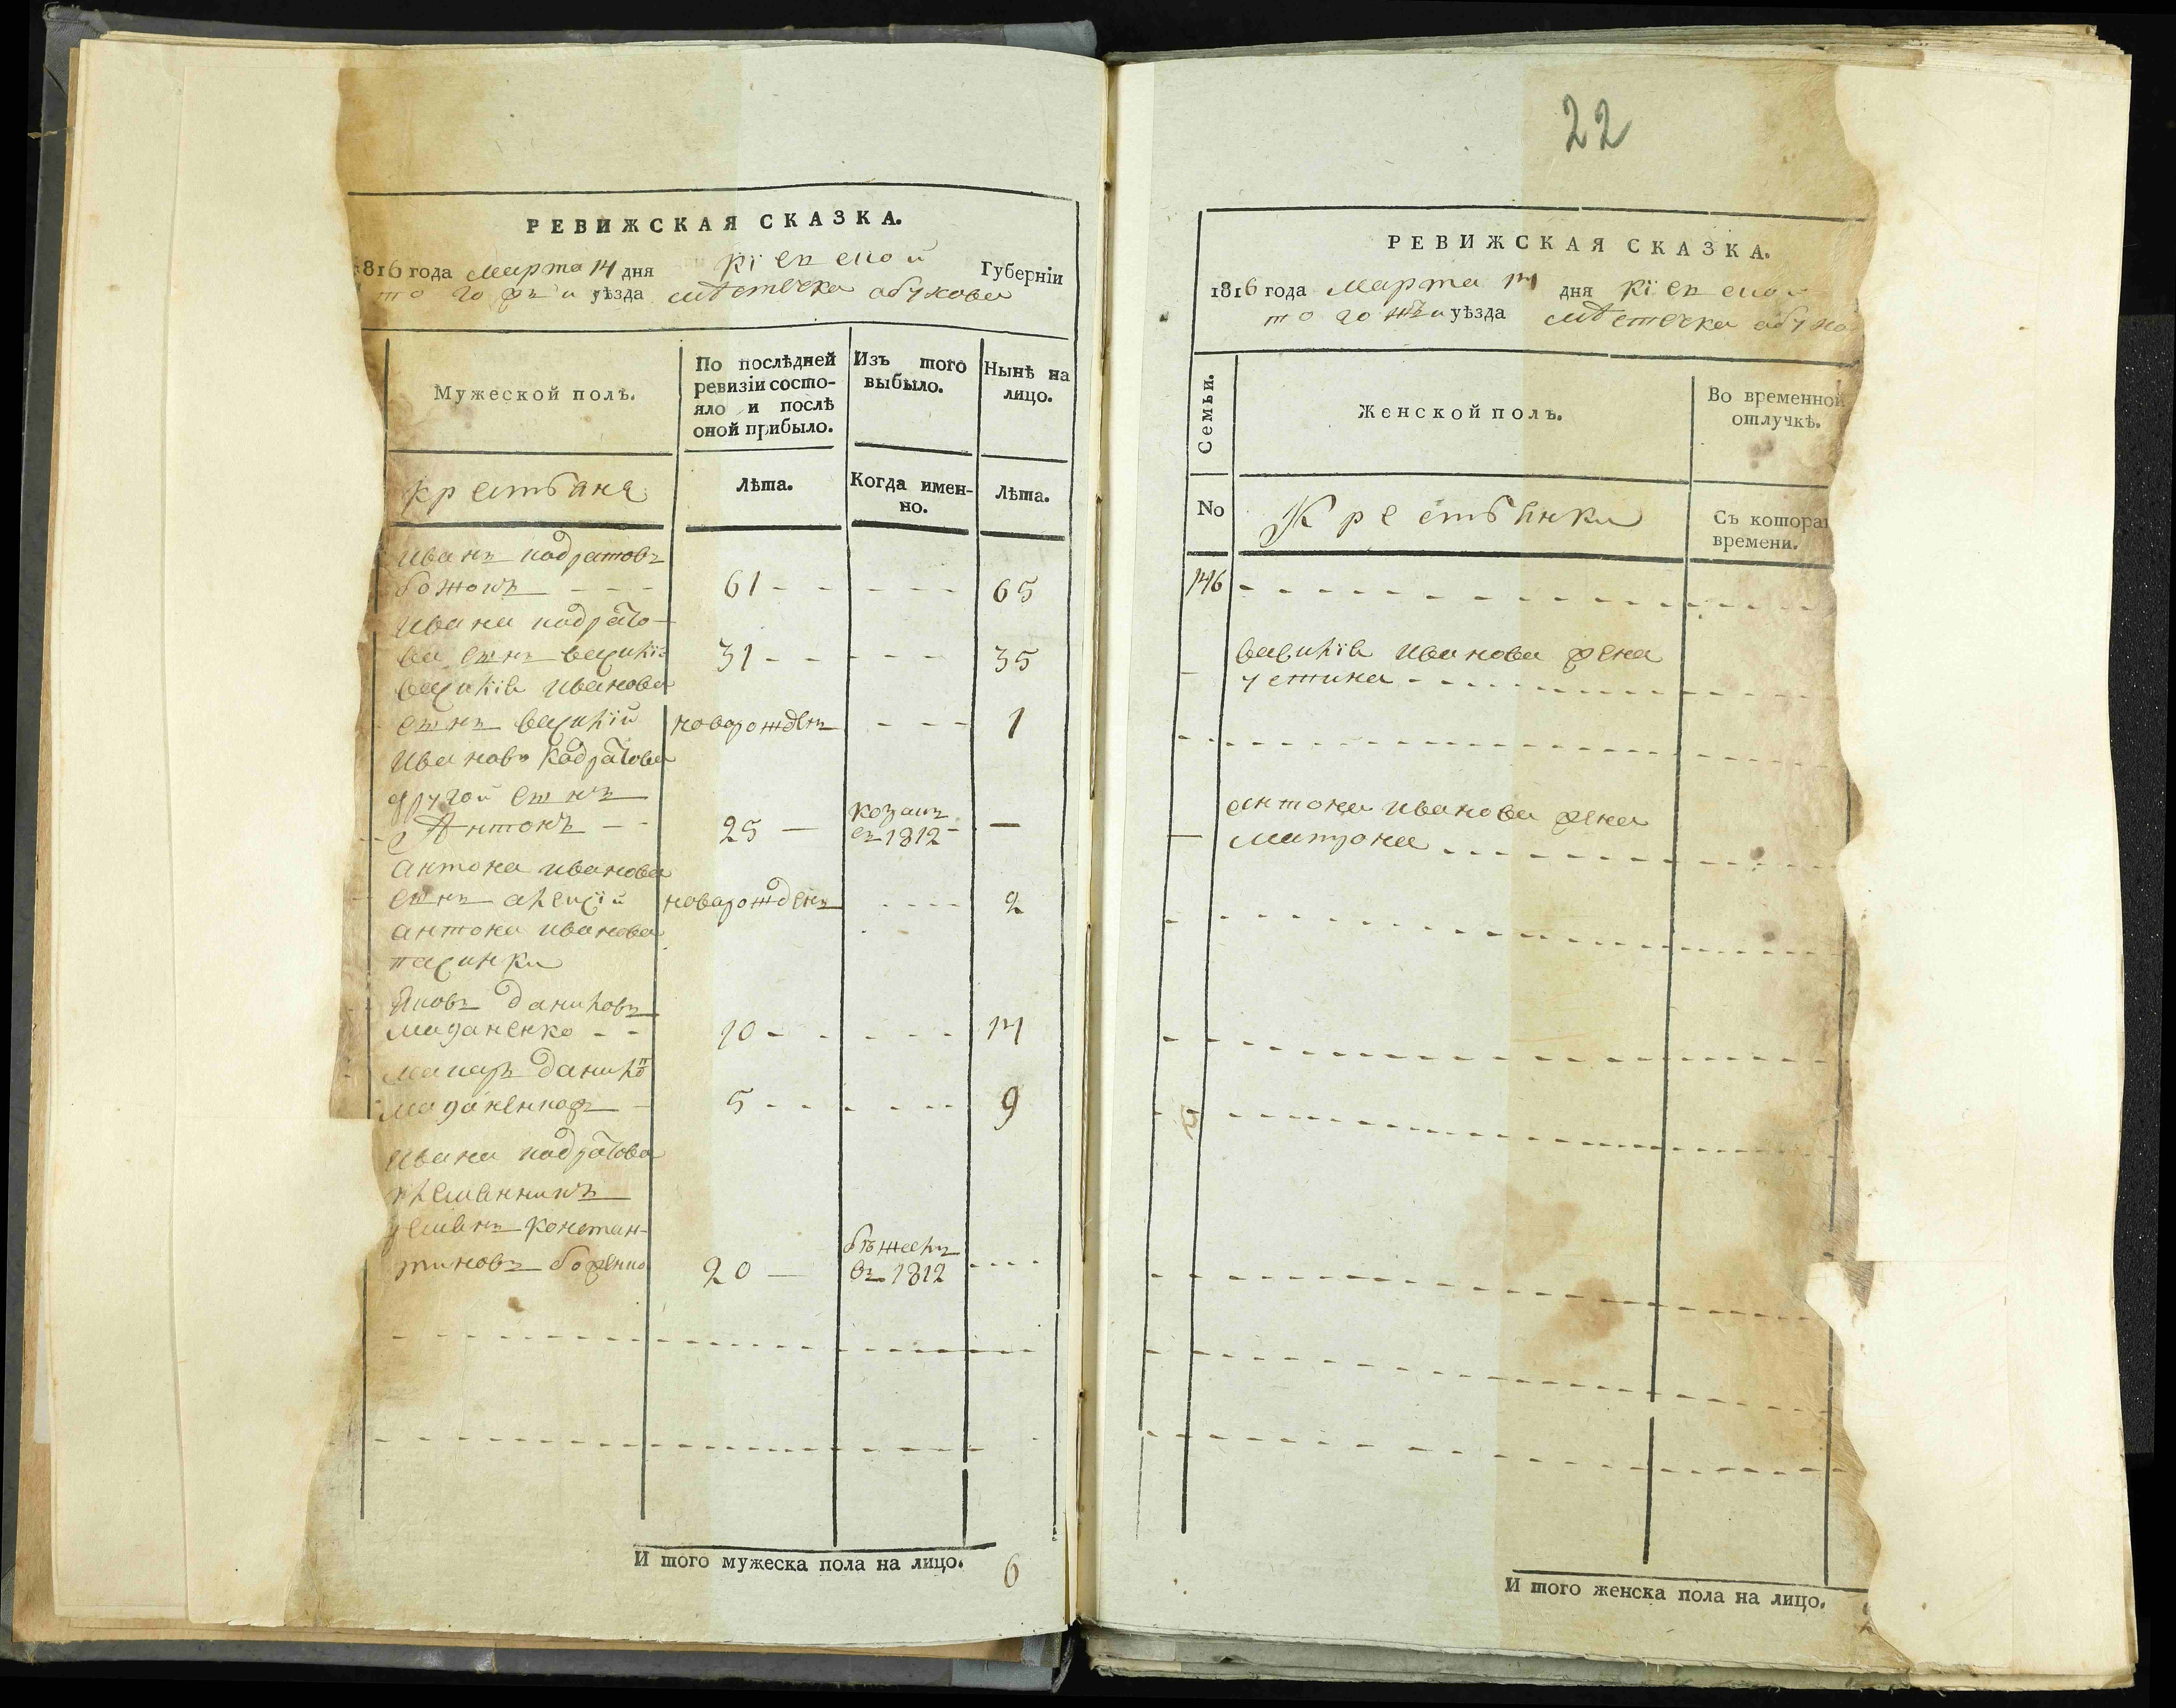 РЕВИЖСКАЯ СКАЗКА.
1816 года марта 14 дня кіевской Губерніи
того жъ и уѣзда мѣстечка обухова
Мужеской полъ.
По послѣдней
ревизіи состо-
яло и послѣ
оной прибыло.
Изъ того
выбыло.
Нынѣ на
лицо.
крестьяне
Лѣта.
Когда имен-
но.
Лѣта.
иванъ кодратовъ
божокъ 61 65
ивана кодрато-
ва сынъ василій 31 35
василія иванова
сынъ василій новорожденъ 1
иванова кодратова
другой сынъ
Антонъ 25 козакъ съ 1812
антона иванова
сынъ алексій новорожденъ 2
антона иванова
пасинки
Яковъ даниловъ
10 14
макаръ данило
5 9
ивана кодратова
племянникъ
константи-
новъ боженко 20 бѣжалъ въ 1812
И того мужеска пола на лицо. 6
22
РЕВИЖСКАЯ СКАЗКА.
1816 года марта 14 дня кіевской
того жъ и уѣзда мѣстечка обухо
Семьи.
Женской полъ.
Во временной
отлучкѣ.
No
Крестьянки
Съ котора
времени.
146
василія иванова жена
устина
антона иванова жена
матрона
И того женска пола на лицо.